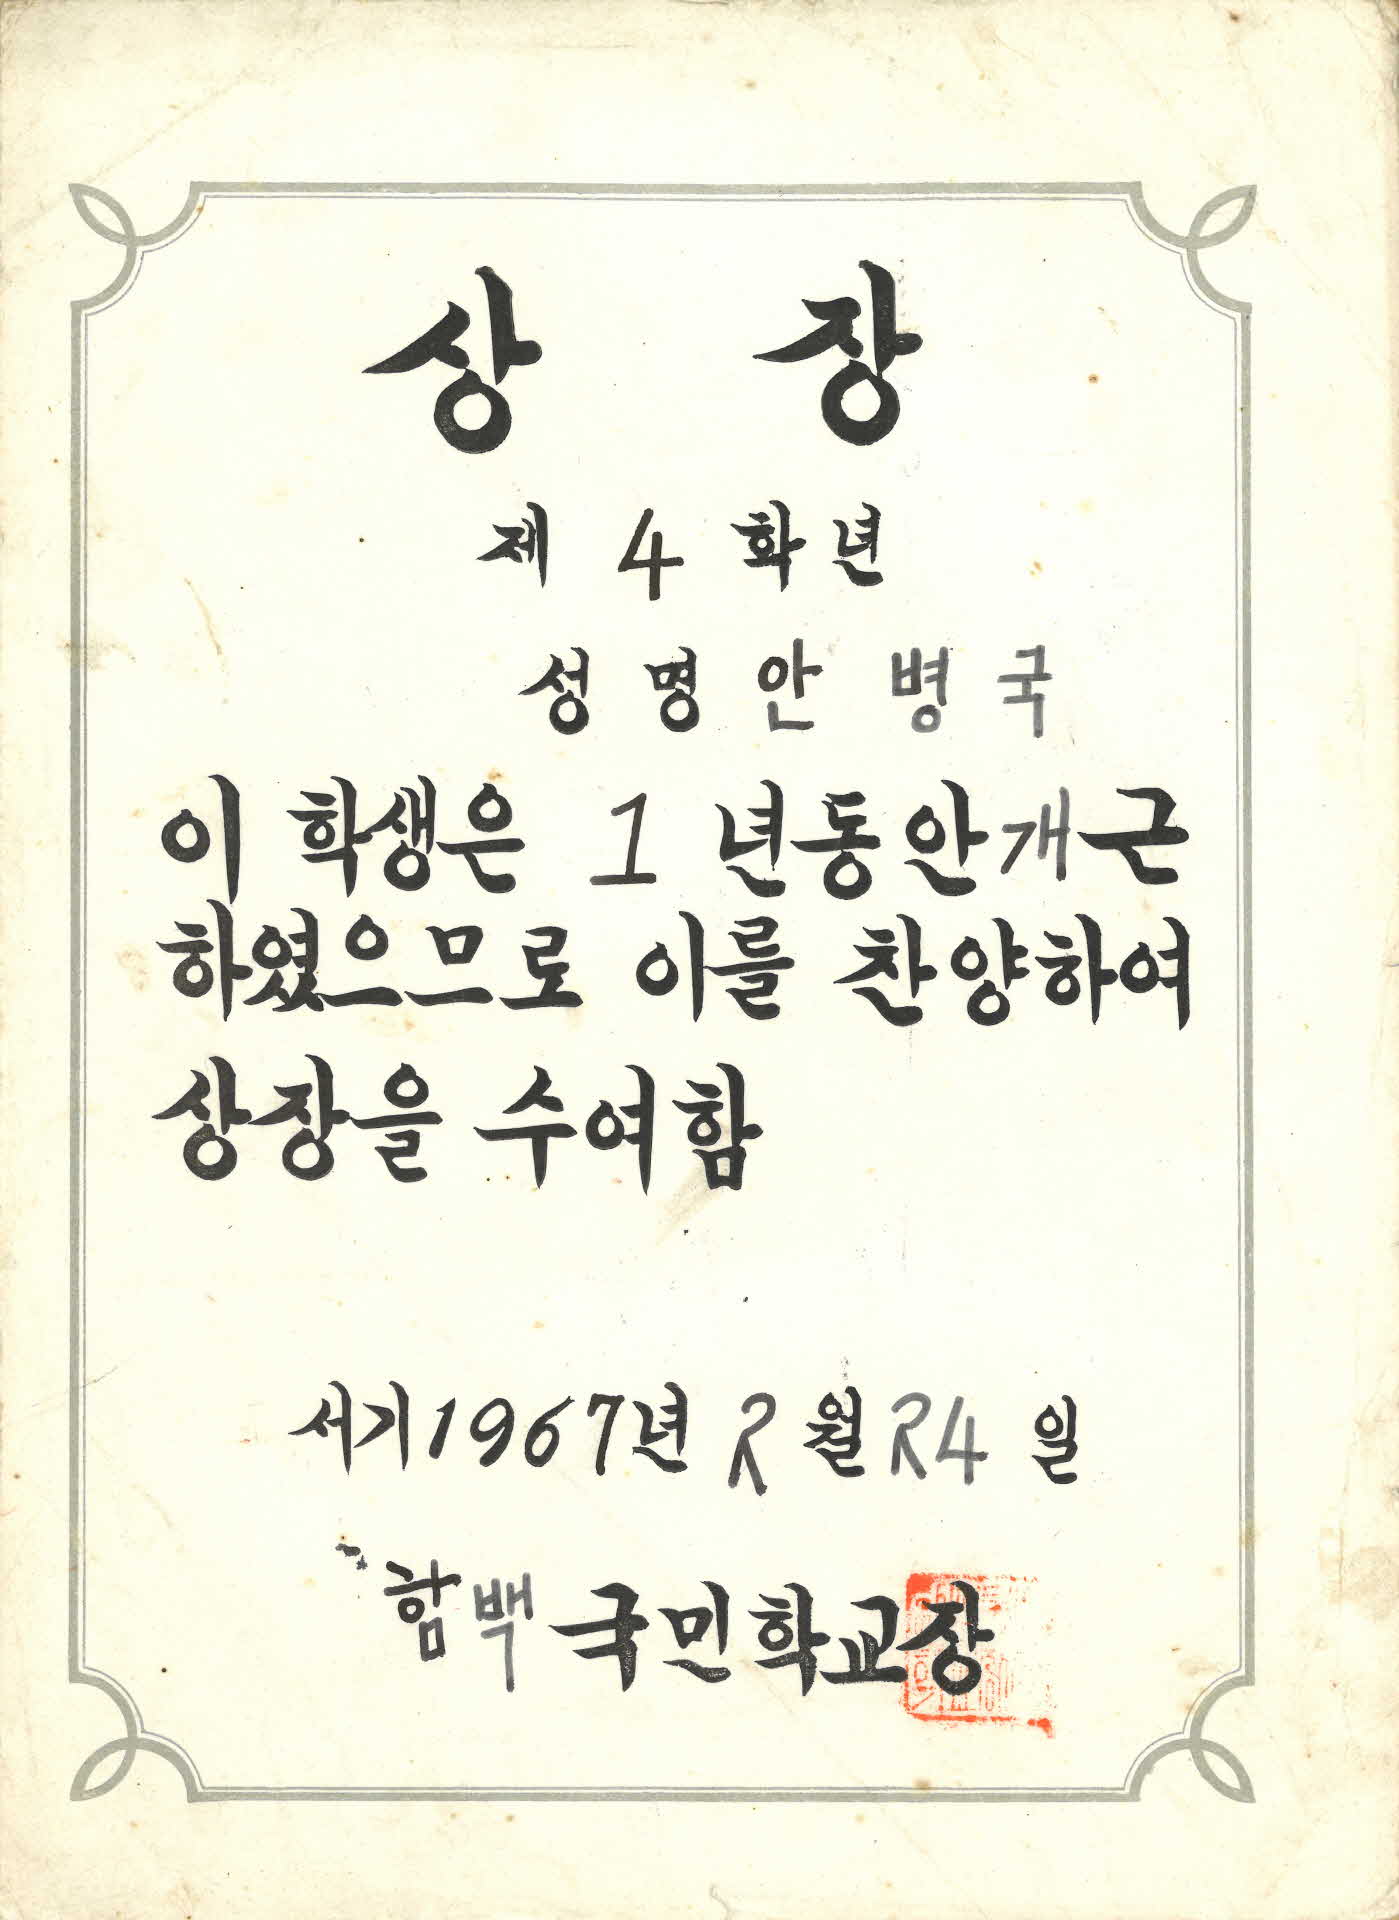 상 장
제 4 학년
성 명 안 병 국
이 학생은 1 년동안개근
하였으므로 이를 찬양하여
상장을 수여함
서기1967년 2 월 24 일
함백 국민학교장